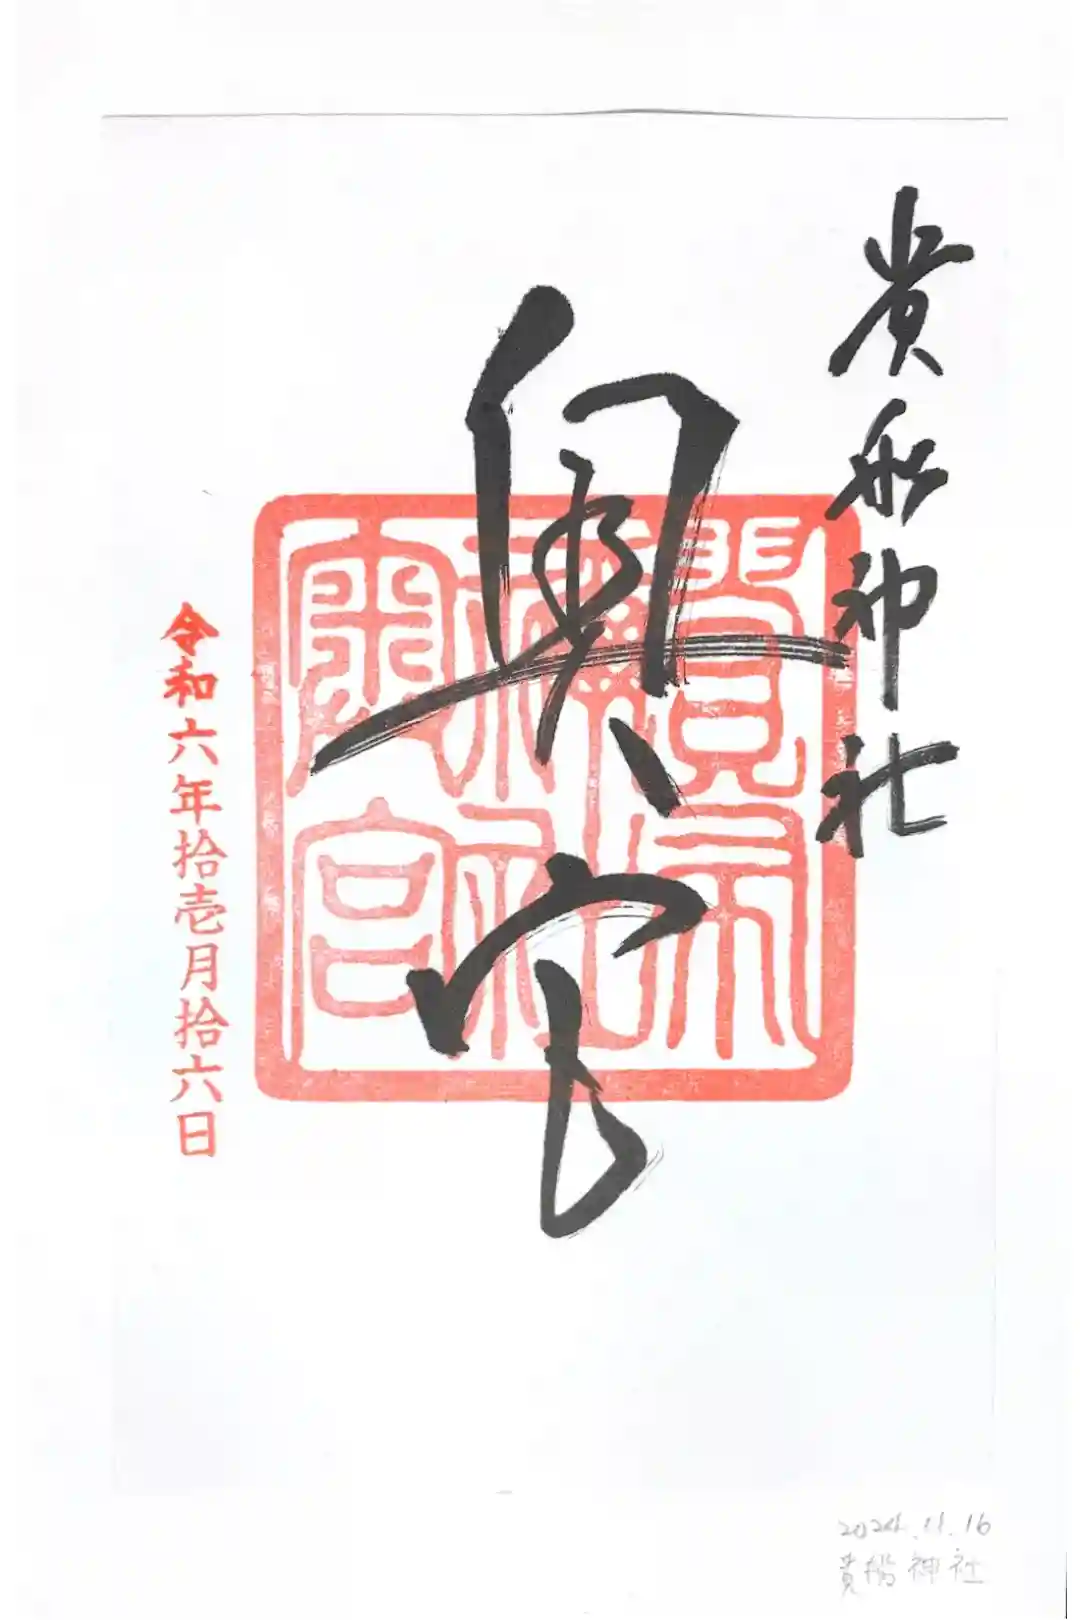 貴船神社
奥宮
令和六年拾壱月拾六日
2024.11.16
貴船神社